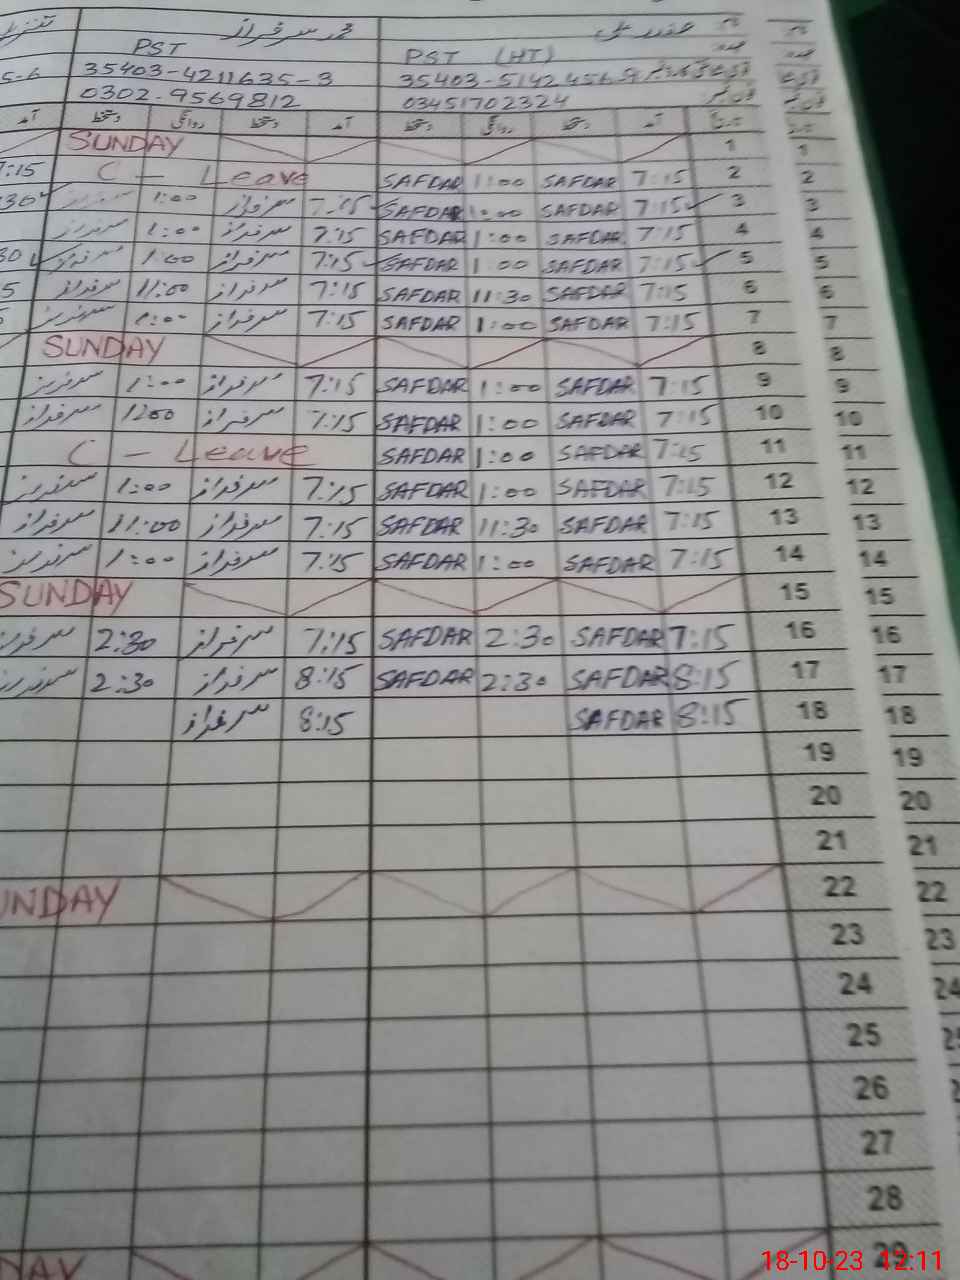 محمد سرفراز صفدر علی نام
PST PST (HT) عہدہ
5-6 35403-4211635-3 35403-5142456-9
0302-9569812 03451702324 فون نمبر
آمد دستخط روانگی دستخط آمد دستخط روانگی دستخط آمد تاریخ
SUNDAY 1 1
7:15 C - Leave SAFDAR 1:00 SAFDAR 7:15 2 2
30 سرفراز 1:00 سرفراز 7:15 SAFDAR 1:00 SAFDAR 7:15 3 3
سرفراز 1:00 سرفراز 7:15 SAFDAR 1:00 SAFDAR 7:15 4 4
30 سرفراز 1:00 سرفراز 7:15 SAFDAR 1:00 SAFDAR 7:15 5 5
5 سرفراز 11:00 سرفراز 7:15 SAFDAR 11:30 SAFDAR 7:15 6 6
سرفراز 1:00 سرفراز 7:15 SAFDAR 1:00 SAFDAR 7:15 7 7
SUNDAY 8 8
سرفراز 1:00 سرفراز 7:15 SAFDAR 1:00 SAFDAR 7:15 9 9
سرفراز 1:00 سرفراز 7:15 SAFDAR 1:00 SAFDAR 7:15 10 10
C - Leave SAFDAR 1:00 SAFDAR 7:15 11 11
سرفراز 1:00 سرفراز 7:15 SAFDAR 1:00 SAFDAR 7:15 12 12
سرفراز 11:00 سرفراز 7:15 SAFDAR 11:30 SAFDAR 7:15 13 13
سرفراز 1:00 سرفراز 7:15 SAFDAR 1:00 SAFDAR 7:15 14 14
SUNDAY 15 15
سرفراز 2:30 سرفراز 7:15 SAFDAR 2:30 SAFDAR 7:15 16 16
سرفراز 2:30 سرفراز 8:15 SAFDAR 2:30 SAFDAR 8:15 17 17
سرفراز 8:15 SAFDAR 8:15 18 18
19 19
20 20
21 21
UNDAY 22 22
23 23
24 24
25
26
27
28
DAY 29
18-10-23 12:11